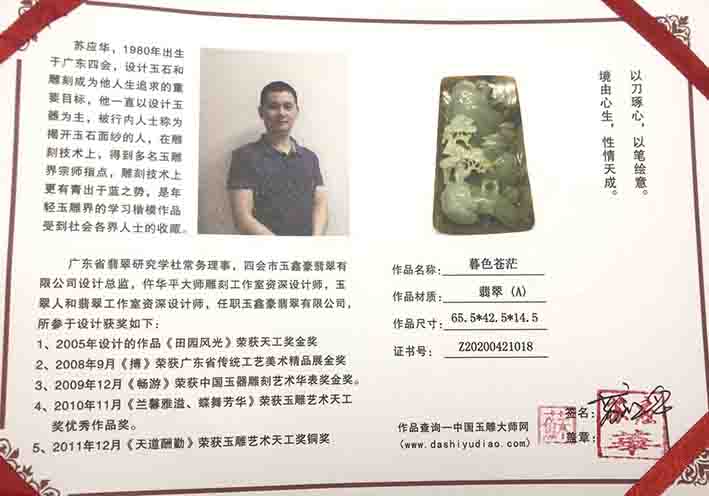 苏应华，1980年出生
于广东四会，设计玉石和
雕刻成为他人生追求的重
要目标，他一直以设计玉
器为主，被行内人士称为
揭开玉石面纱的人，在雕
刻技术上，得到多名玉雕
界宗师指点，雕刻技术上
更有青出于蓝之势，是年
轻玉雕界的学习楷模作品
受到社会各界人士的收藏。
广东省翡翠研究学社常务理事，四会市玉鑫豪翡翠有
限公司设计总监，仵华平大师雕刻工作室资深设计师，玉
翠人和翡翠工作室资深设计师，任职玉鑫豪翡翠有限公司，
所参于设计获奖如下：
1、2005年设计的作品《田园风光》荣获天工奖金奖
2、2008年9月《搏》荣获广东省传统工艺美术精品展金奖
3、2009年12月《畅游》荣获中国玉器雕刻艺术华表奖金奖。
4、2010年11月《兰馨雅溢、蝶舞芳华》荣获玉雕艺术天工
奖优秀作品奖。
5、2011年12月《天道酬勤》荣获玉雕艺术天工奖铜奖
以刀琢心，以笔绘意。
境由心生，性情天成。
作品名称： 暮色苍茫
作品材质： 翡翠（A）
作品尺寸： 65.5*42.5*14.5
证书号： Z20200421018
作品查询一中国玉雕大师网
（www.dashiyudiao.com）
签名：
盖章：